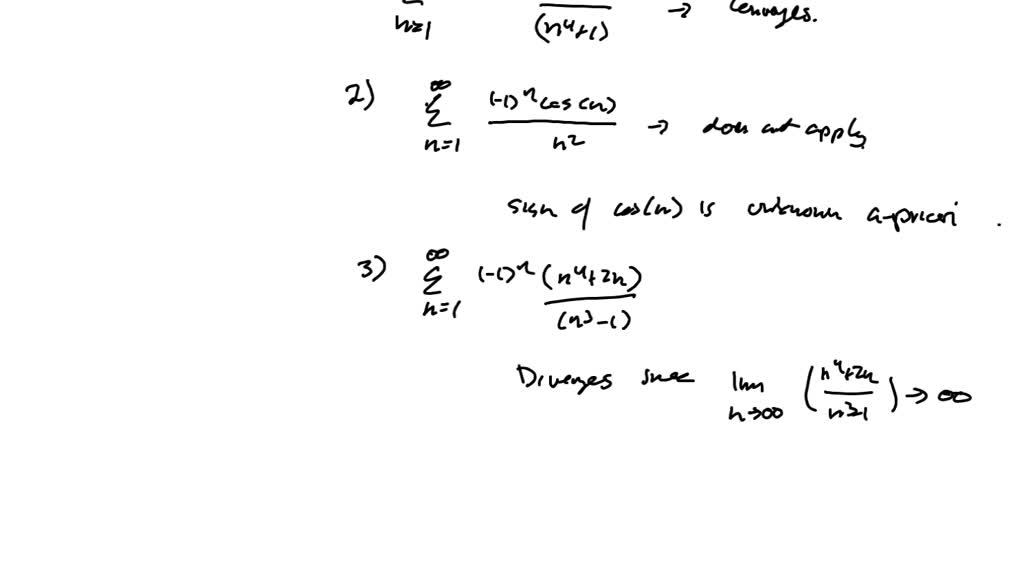 n=1 (n⁴+1) → converges.
2) ∞ Σ n=1 (-1)ⁿ cos(n) / n² → does not apply
sign of cos(n) is unknown a-priori .
3) ∞ Σ n=1 (-1)ⁿ (n⁴+2n) / (n³-1)
Diverges since lim n→∞ (n⁴+2n / n³-1) → ∞